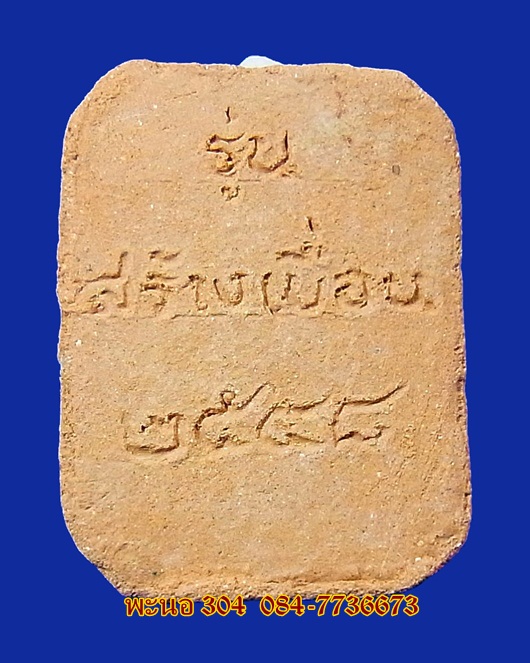 รุ่น
สร้างเขื่อน
๒๕๔๘
พะนอ 304 084-7736673